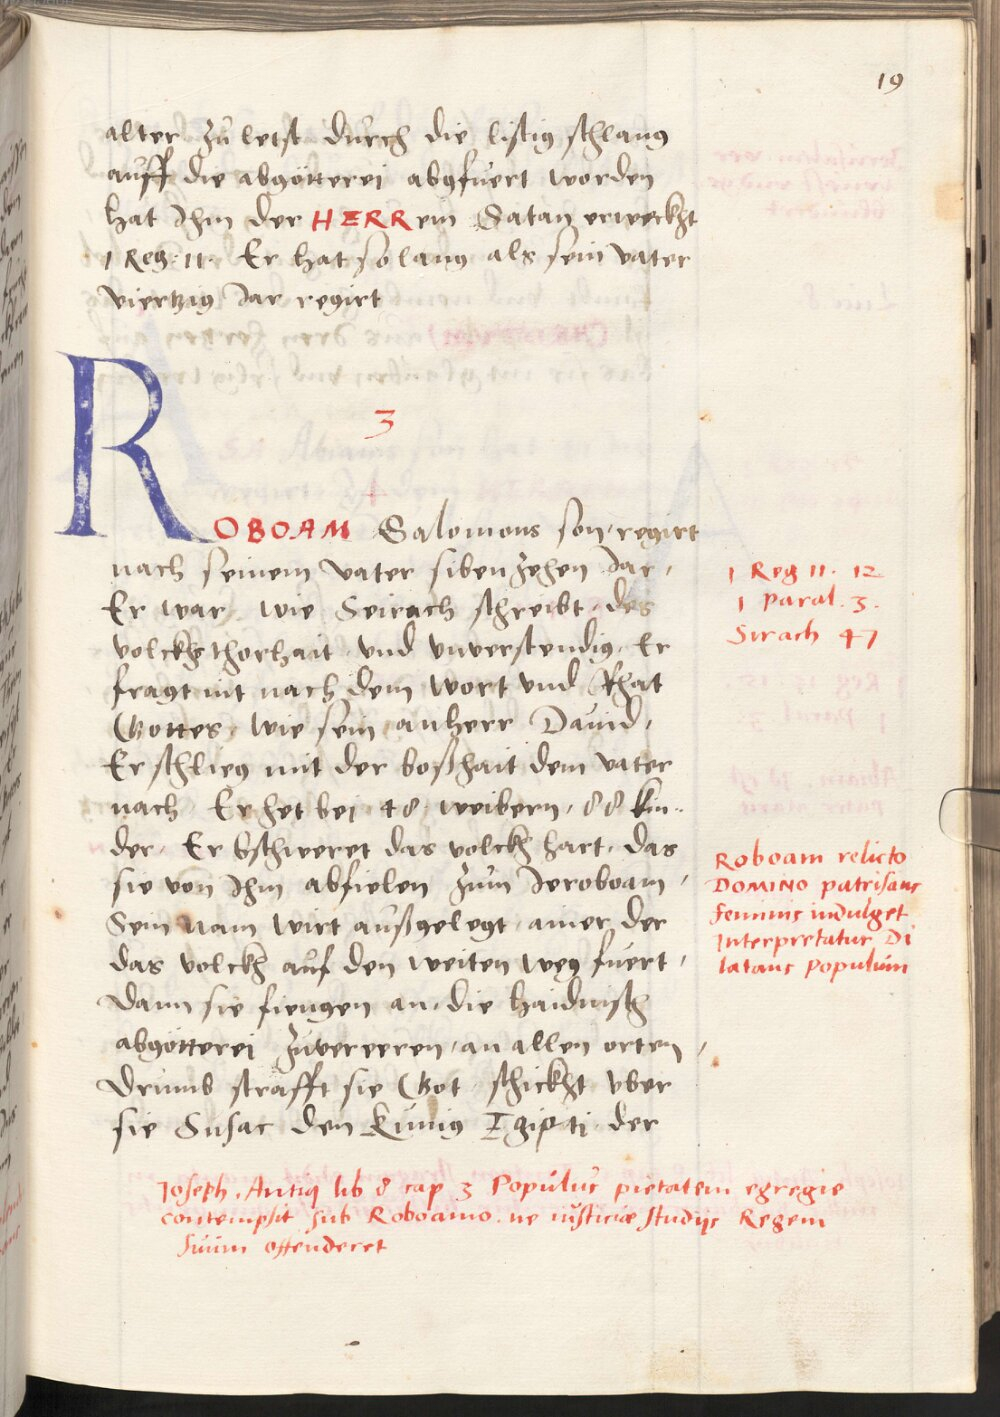 19
alter zu letst durch die listig schlang
auff die abgötterei abgfuert worden
hat Ihm der HERR ein Satan erweckht
1 Reg. 11. Er hat so lang als sein vater
viertzig Jar regirt
3
ROBOAM Salomons son regirt
nach seinem vater siben zehen Jar,
Er war, wie Seirach schreibt, des
volckhs thorhait und unverstendig, Er
fragt nit nach dem wort und Rhat
Gottes, wie sein anherr David,
Er schlieg mit der boßhait dem vater
nach, Er het bei 18 weibern, 88 kin-
der, Er bschweret das volckh hart, das
sie von Ihm abfielen zum Jeroboam,
Sein nam wirt außgelegt, ainer der
das volckh auf den weiten weg fuert,
Dann sie fiengen an die haidnisch
abgötterei zuvereeren, an allen orten,
Drumb strafft sie Got, schickht vber
sie Susac den Künig Egipti der
1 Reg 11. 12
1 Paral. 3.
Sirach 47
Roboam relicto
DOMINO patrisans
feminis indulget
Interpretatur Di
latans Populum
Joseph. Antiq lib 8 cap 3 Populus pietatem egregie
contempsit sub Roboamo. ne iusticiae studijs Regem
suum offenderet